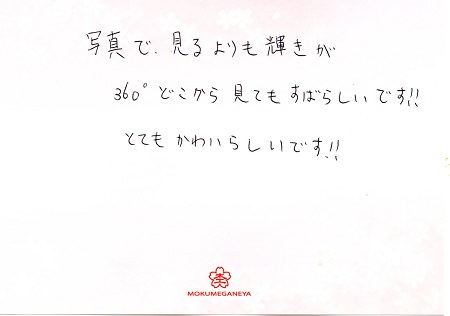 写真で見るよりも輝きが
360°どこから見てもすばらしいです!!
とてもかわいらしいです!!
MOKUMEGANEYA